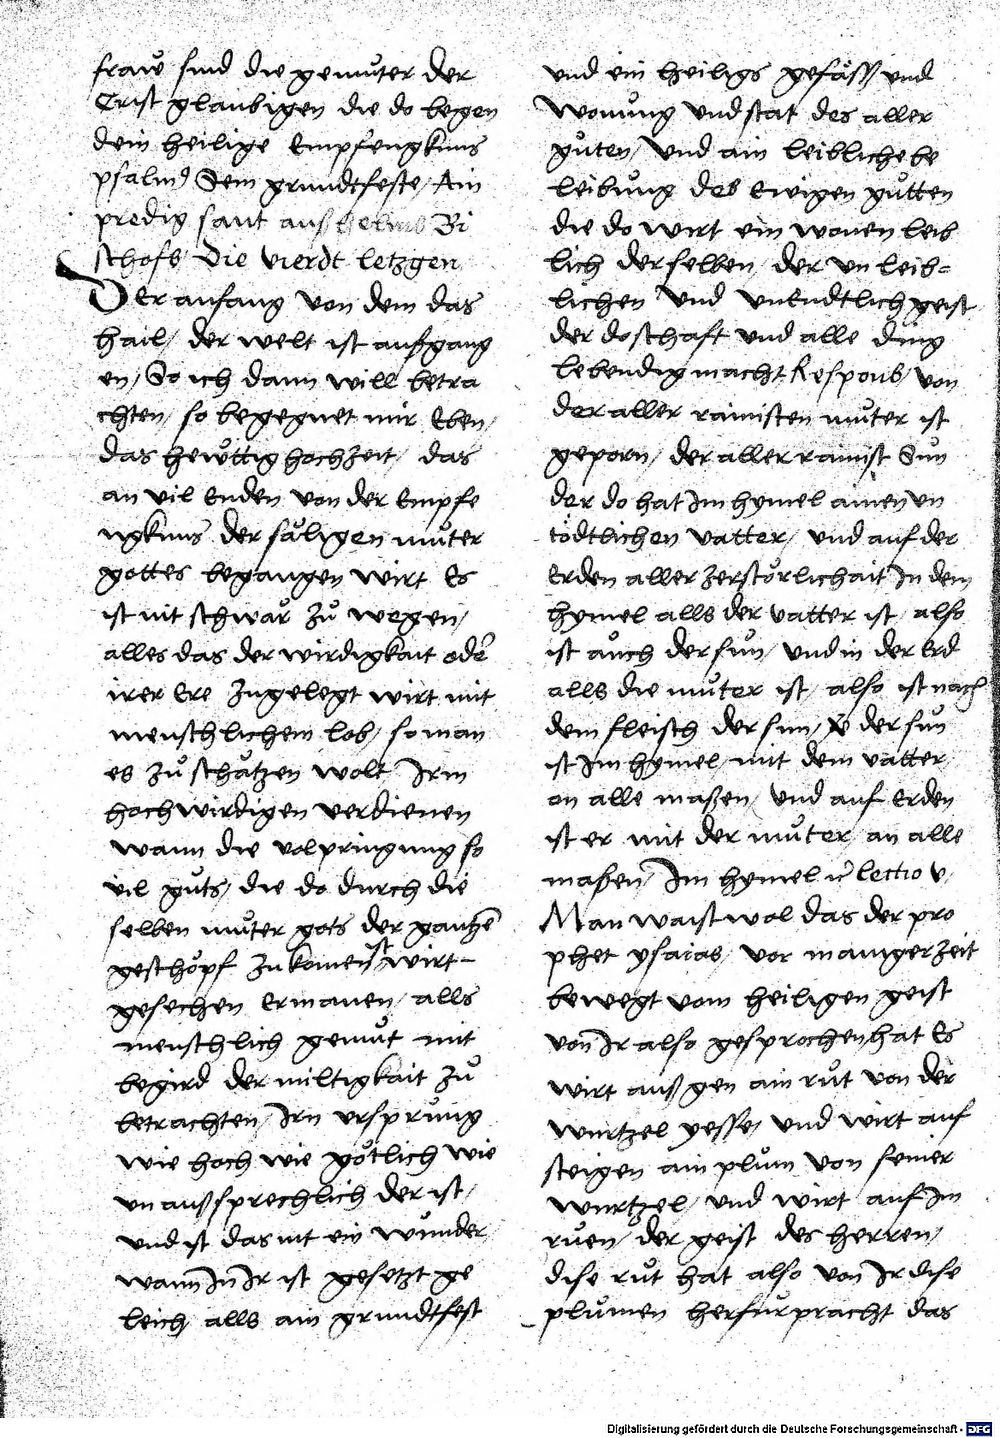 fraw sind die gemuter der
Crist glaubigen die do begen
dein heilige Empfengknus
psalm9 Sein grundtfeste / Ain
predig sant anshelms Bi
schofs / Die vierdt letzgen
Der anfang von dem das
hail / der welt ist aufgang
en / So ich dann will betra
chten / so begegnet mir Eben /
das hewttig hochzeit / das
an vil enden von der Empfe
ngknus der såligen můter
gottes begangen wirt Es
ist nit schwår zů wegen /
alles das der wirdigkait oder
irer Ere zugelegt wirt mit
menschlichem lob / so man
es zů schåtzen wolt Irm
hochwirdigen verdienen
wann die volpringung so
vil gůts / die do durch die
selben můter gots der gantzen
geschöpf zukomen ist wirt –
gesechen Ermanen / alls
menschlich gemůt mit
begird der miltigkait zů
betrachten / Irn ursprůng
wie hoch wie götlich wie
unaußsprechlich der ist /
und ist das nit ein wůnder /
wann In Ir ist gesetzt ge
leich alls ain grundtfest
und ein heiligs gefåss und
wonung und stat des aller
gůten / und ain leibliche be
leibung des ewigen gůtten
die do wirt ein wonen leib
lich derselben / der un leib=
lichen und unEndtlich geist
der do schaft und alle ding
lebendig macht Respons / von
der aller rainisten můter ist
geporn / der aller rainist Sůn
der do hat Im hymel ainen un
tödtlichen vatter / und auf der
Erden aller zerstörlichait In dem
hymel alls der vatter ist / also
ist aůch der sůn / und in der Erd
alls die můter ist / also ist nach
dem fleisch der sun / der sůn
ist Im hymel / mit dem vatter /
on alle maßen / und auf Erden
ist er mit der můter an alle
maßen / Im hymel lectio v.
Man waist wol das der pro
phet ysaias / vor maniger zeit
bewegt vom heiligen geist
von Ir also gesprochen hat Es
wirt außgen ain růt von der
wurtzel yesse / und wirt auf
steigen ain plům von seiner
wurtzel / und wirt auf Im
růen / der geist des herren /
dise růt hat also von Ir dise
plůmen herfůrpracht das
Digitalisierung gefördert durch die Deutsche Forschungsgemeinschaft - DFG